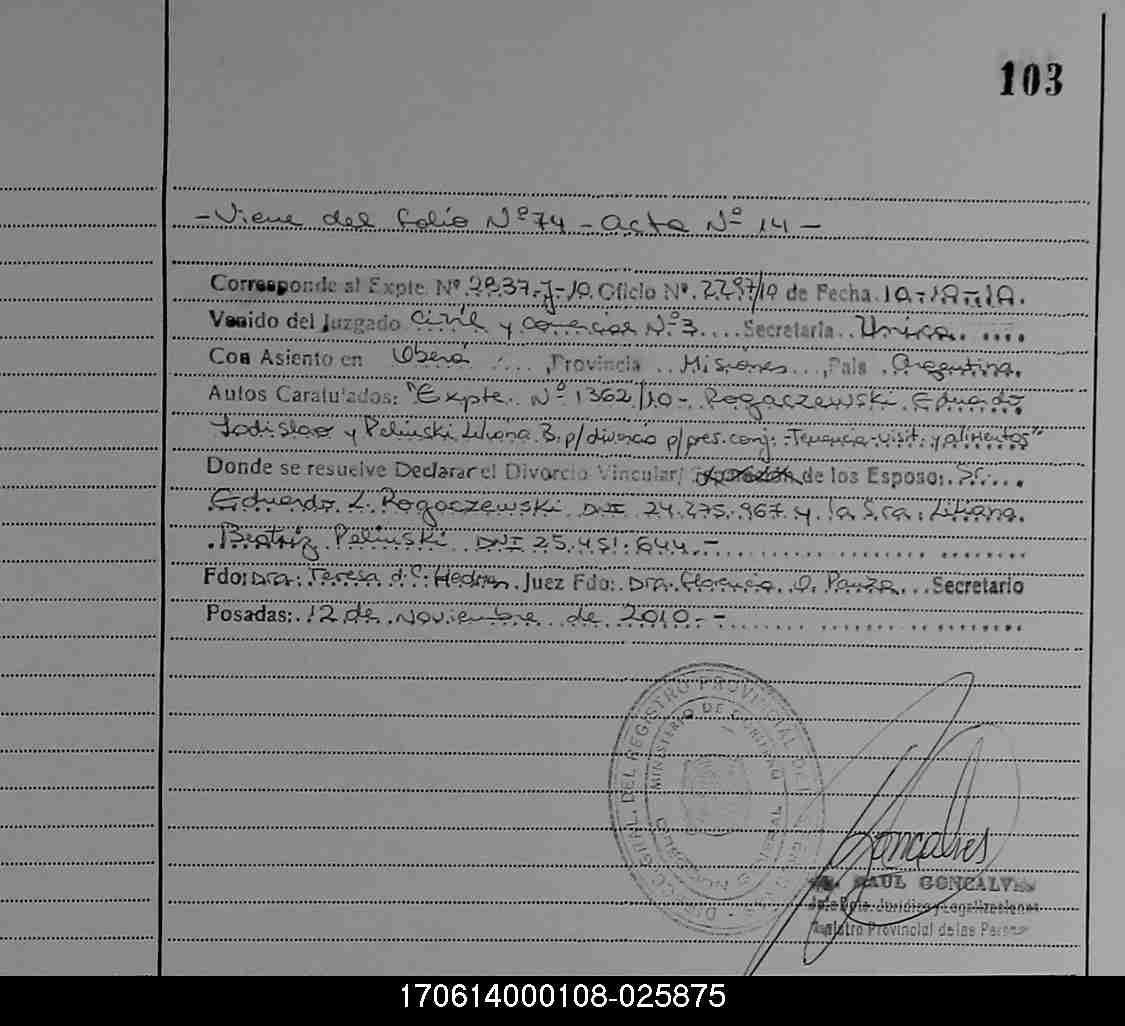 103
- Viene del folio Nº 74 - Acta Nº 14 -
Corresponde al Expte. Nº 2937-J-10 Oficio Nº 2297/10 de Fecha 10-10-10.
Venido del Juzgado Civil y Comercial Nº 3 .... Secretaria .. Unica ....
Con Asiento en Oberá ..., Provincia .. Misiones ..., Pais . Argentina.
Autos Caratulados: "Expte. Nº 1362/10 - Rogaczewski Eduardo
Ladislao y Pelinski Liliana B. p/divorcio p/pres. conj. - Tenencia - visit. y alimentos"
Donde se resuelve Declarar el Divorcio Vincular/ de los Esposo: Sr. ...
Eduardo L. Rogaczewski DNI 24.275.967 y la Sra. Liliana
Beatriz Pelinski DNI 25.451.644.-
Fdo: Dra. Teresa d. C. Juez Fdo: Dra. Florencia Panza ... Secretario
Posadas: 12 de Noviembre de 2010.-
DIRECC. GRAL. DEL REGISTRO PROVINCIAL DE LAS
MINISTERIO DE
Goncalves
RAUL GONCALVES
Jefe Dpto. Jurídico y Legalizaciones
Registro Provincial de las Personas
170614000108-025875